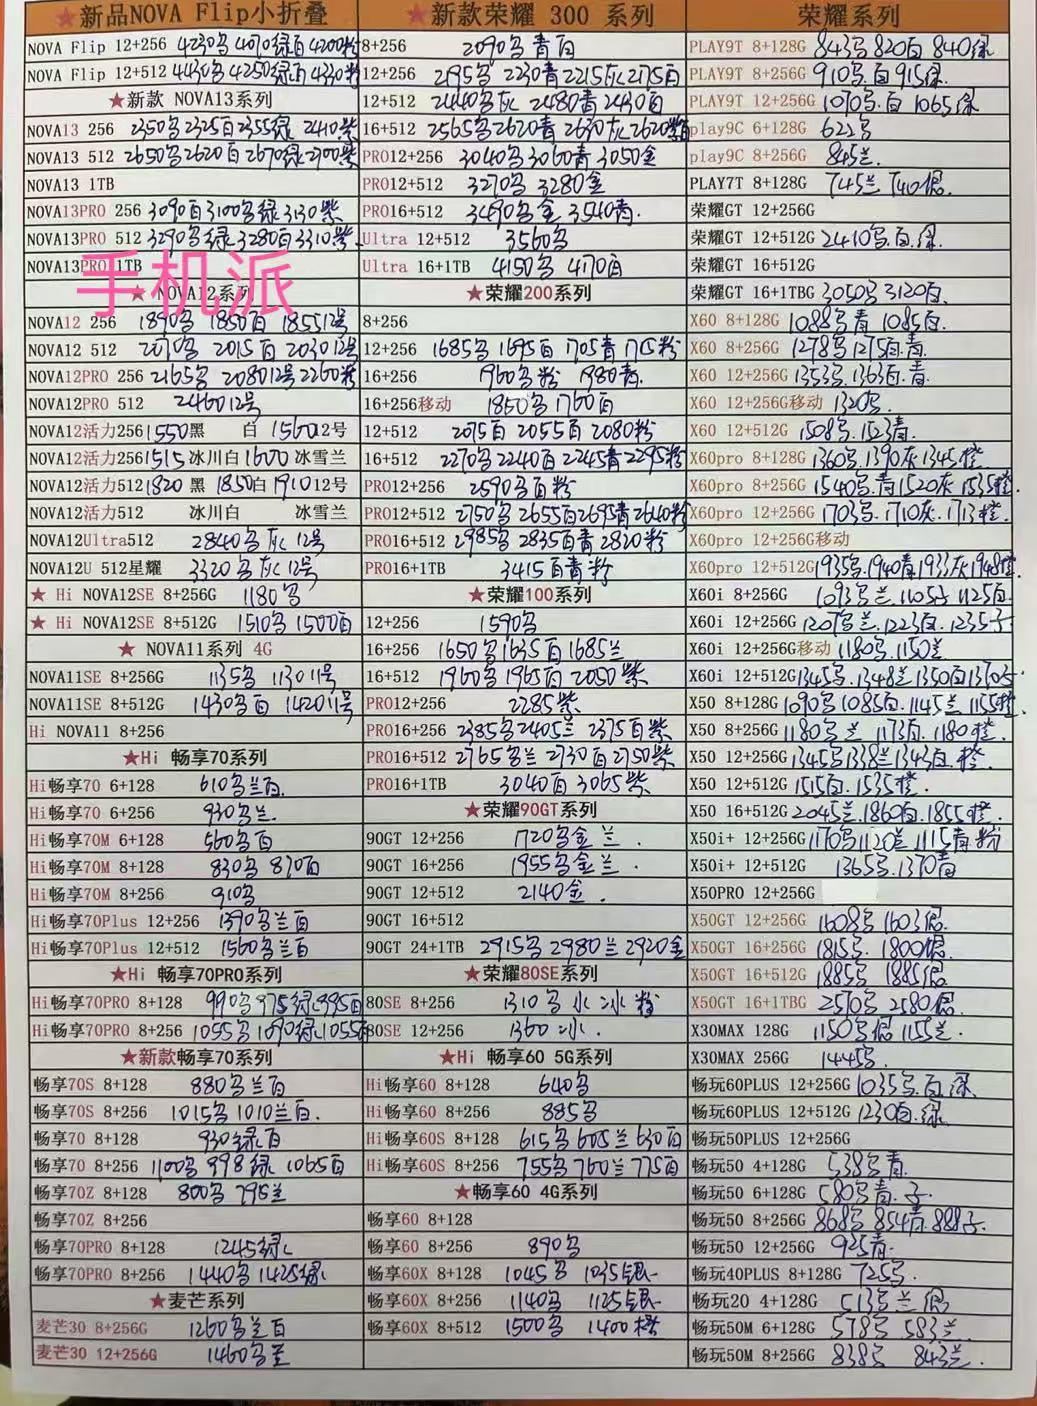 ★新品NOVA Flip小折叠
NOVA Flip 12+256 4230鸟 4070绿白 4200粉
NOVA Flip 12+512 4430鸟 4250绿白 4330粉
★新款 NOVA13系列
NOVA13 256 2350鸟 2325白 2355绿 2410紫
NOVA13 512 2650鸟 2620白 2670绿 2700紫
NOVA13 1TB
NOVA13PRO 256 3090白 3100鸟绿 3130紫
NOVA13PRO 512 3290鸟绿 3280白 3310紫
NOVA13PRO 1TB
手机派
★ NOVA12系列
NOVA12 256 1890鸟 1850白 1855 12号
NOVA12 512 2070鸟 2015白 2030 12号
NOVA12PRO 256 2165鸟 2080 12号 2260粉
NOVA12PRO 512 2460 12号
NOVA12活力256 1550黑 白 1560 12号
NOVA12活力256 1515 冰川白 1600 冰雪兰
NOVA12活力512 1820 黑 1850白 1910 12号
NOVA12活力512 冰川白 冰雪兰
NOVA12Ultra512 2840鸟 灰 12号
NOVA12U 512星耀 3320鸟 灰 12号
★ Hi NOVA12SE 8+256G 1180鸟
★ Hi NOVA12SE 8+512G 1510鸟 1500白
★ NOVA11系列 4G
NOVA11SE 8+256G 1135鸟 1130 11号
NOVA11SE 8+512G 1430鸟白 1420 11号
Hi NOVA11 8+256
★Hi 畅享70系列
Hi畅享70 6+128 610鸟兰白.
Hi畅享70 6+256 930鸟兰.
Hi畅享70M 6+128 560鸟白
Hi畅享70M 8+128 830鸟 870白
Hi畅享70M 8+256 910鸟
Hi畅享70Plus 12+256 1390鸟兰白
Hi畅享70Plus 12+512 1560鸟兰白
★Hi 畅享70PRO系列
Hi畅享70PRO 8+128 990鸟 975绿 995白
Hi畅享70PRO 8+256 1055鸟 1090绿 1055白
★新款畅享70系列
畅享70S 8+128 880鸟兰白
畅享70S 8+256 1015鸟 1010兰白.
畅享70 8+128 930绿白
畅享70 8+256 1100鸟 998绿 1065白
畅享70Z 8+128 800鸟 795兰
畅享70Z 8+256
畅享70PRO 8+128 1245绿
畅享70PRO 8+256 1440鸟 1425绿
★麦芒系列
麦芒30 8+256G 1260鸟兰白
麦芒30 12+256G 1460鸟兰
★新款荣耀 300 系列
8+256 2090鸟青白
12+256 2195鸟 2230青 2215灰 2175白
12+512 2440鸟灰 2480青 2430白
16+512 2565鸟 2620青 2630灰 2620紫白
PRO12+256 3040鸟 3060青 3050金
PRO12+512 3270鸟 3280金
PRO16+512 3490鸟金 3540青.
Ultra 12+512 3560鸟
Ultra 16+1TB 4150鸟 4170白
★荣耀200系列
8+256
12+256 1685鸟 1695白 1705青 1715粉
16+256 1960鸟粉 1980青.
16+256移动 1850鸟 1760白
12+512 2075白 2055白 2080粉
16+512 2270鸟 2240白 2245青 2295粉
PRO12+256 2590鸟白粉
PRO12+512 2750鸟 2655白 2695青 2640粉
PRO16+512 2985鸟 2835白青 2820粉
PRO16+1TB 3415白青粉
★荣耀100系列
12+256 1590鸟
16+256 1650鸟 1635白 1685兰
16+512 1960鸟 1965白 2050紫
PRO12+256 2285紫
PRO16+256 2385鸟 2405兰 2375白紫
PRO16+512 2765鸟兰 2730白 2750紫
PRO16+1TB 3040白 3065紫
★荣耀90GT系列
90GT 12+256 1720鸟金兰.
90GT 16+256 1955鸟金兰.
90GT 12+512 2140金.
90GT 16+512
90GT 24+1TB 2915鸟 2980兰 2920金
★荣耀80SE系列
80SE 8+256 1310鸟 水 冰 粉
80SE 12+256 1360 冰.
★Hi 畅享60 5G系列
Hi畅享60 8+128 640鸟
Hi畅享60 8+256 885鸟
Hi畅享60S 8+128 615鸟 605兰 630白
Hi畅享60S 8+256 755鸟 760兰 775白
★畅享60 4G系列
畅享60 8+128
畅享60 8+256 890鸟
畅享60X 8+128 1045鸟 1035银
畅享60X 8+256 1140鸟 1125银
畅享60X 8+512 1500鸟 1400橙
荣耀系列
PLAY9T 8+128G 843鸟 820白 840绿
PLAY9T 8+256G 910鸟.白 915绿.
PLAY9T 12+256G 1070鸟.白 1065绿
play9C 6+128G 622鸟
play9C 8+256G 845兰.
PLAY7T 8+128G 745兰 740银.
荣耀GT 12+256G
荣耀GT 12+512G 2410鸟.白.绿.
荣耀GT 16+512G
荣耀GT 16+1TBG 3050鸟 3120白.
X60 8+128G 1088鸟青 1085白.
X60 8+256G 1278鸟 1275白.青.
X60 12+256G 1353鸟.1363白.青.
X60 12+256G移动 1320鸟.
X60 12+512G 1508鸟.1523青.
X60pro 8+128G 1360鸟.1390灰 1345橙.
X60pro 8+256G 1540鸟.青 1520灰 1535橙.
X60pro 12+256G 1703鸟.1710灰.1713橙.
X60pro 12+256G移动
X60pro 12+512G 1935鸟.1940青 1933灰 1948橙.
X60i 8+256G 1093鸟兰.1105子 1125白.
X60i 12+256G 1207鸟兰.1223白.1235子
X60i 12+256G移动 1180鸟.1150兰
X60i 12+512G 1345鸟.1348兰 1350白 1370子.
X50 8+128G 1090鸟 1085白.1145兰 1155橙.
X50 8+256G 1180鸟兰 1173白.1180橙.
X50 12+256G 1345鸟 1338兰 1343白.橙.
X50 12+512G 1515白.1535橙.
X50 16+512G 2045兰.1860白.1855橙.
X50i+ 12+256G 1170鸟 1120兰 1115青粉
X50i+ 12+512G 1365鸟.1370青
X50PRO 12+256G
X50GT 12+256G 1608鸟 1603银.
X50GT 16+256G 1815鸟. 1800银.
X50GT 16+512G 1885鸟 1885银.
X50GT 16+1TBG 2570鸟 2580银.
X30MAX 128G 1150鸟银 1155兰.
X30MAX 256G 1445鸟.
畅玩60PLUS 12+256G 1035鸟.白.绿.
畅玩60PLUS 12+512G 1230白.绿.
畅玩50PLUS 12+256G
畅玩50 4+128G 538鸟青.
畅玩50 6+128G 580鸟青.子.
畅玩50 8+256G 868鸟 854青.888子.
畅玩50 12+256G 925青.
畅玩40PLUS 8+128G 725鸟.
畅玩20 4+128G 513鸟兰银
畅玩50M 6+128G 578鸟 583兰.
畅玩50M 8+256G 838鸟 843兰.